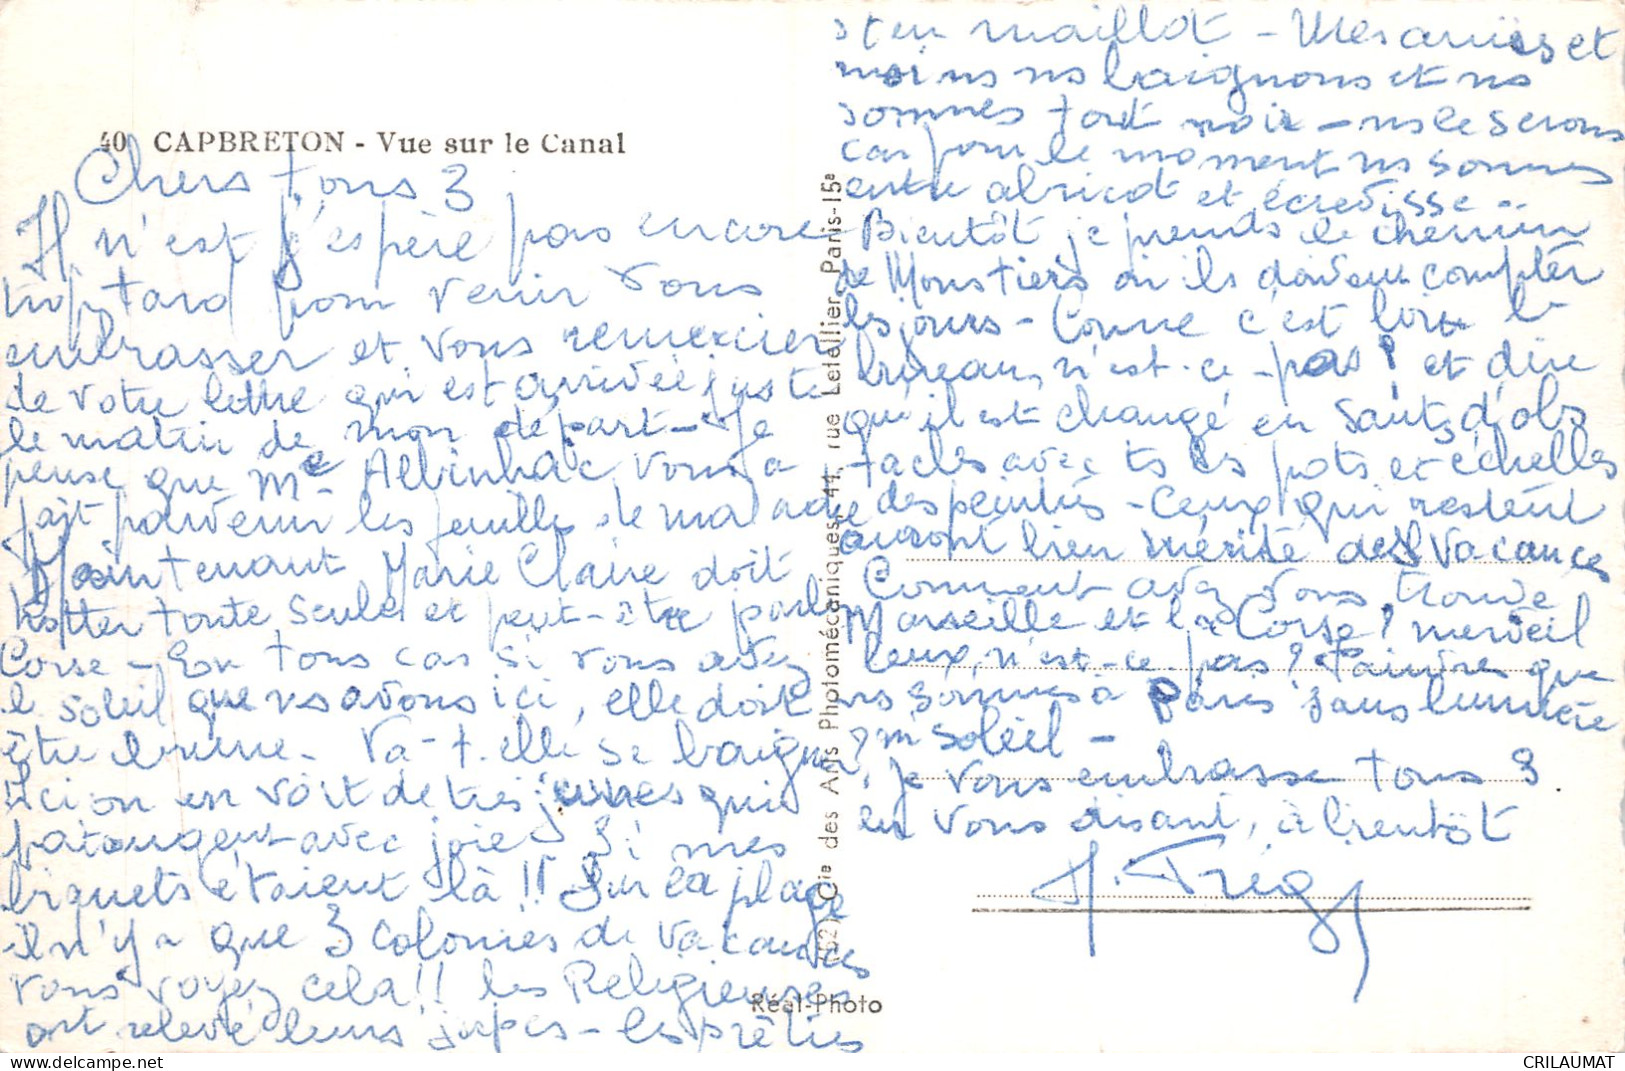 40 CAPBRETON - Vue sur le Canal
Chers tous 3
Il n'est j'espère pas encore
trop tard pour venir vous
embrasser et vous remercier
de votre lettre qui est arrivée juste
le matin de mon départ - Je
pense que Me Albinhac vous a
fait parvenir les feuilles de maladie
Maintenant Marie Claire doit
trotter toute seule et peut-être parler
Corse - En tous cas si vous avez
le soleil que ns avons ici, elle doit
être brune - Va-t-elle se baigner ?
Ici on en voit de très jeunes qui
pataugent avec joie Si mes
biquets étaient là !! Sur la plage
il n'y a que 3 colonies de vacances
vous voyez cela !! les Religieuses
ont relevé leurs jupes - les prêtres
st en maillot - Mes amies et
moi ns ns baignons et ns
sommes tout noir - ns le serons
car pour le moment ns sommes
entre abricot et écrevisse -
Bientôt je prends le chemin
de Moustiers où ils doivent compter
les jours - Comme c'est loin le
bureau, n'est-ce-pas ? et dire
qu'il est changé en sauts d'obs
tacles avec ts les pots et échelles
des peintres - Ceux qui restent
auront bien mérité des vacances
Comment avez vous trouvé
Marseille et la Corse ? merveil
leux, n'est-ce-pas ? Pauvres que
ns sommes à Paris sans lumière
ni soleil -
Je vous embrasse tous 3
en vous disant, à bientôt
(62) Cie des Arts Photomécaniques, 44, rue Letellier, Paris-15e
Réal-Photo
CRILAUMAT